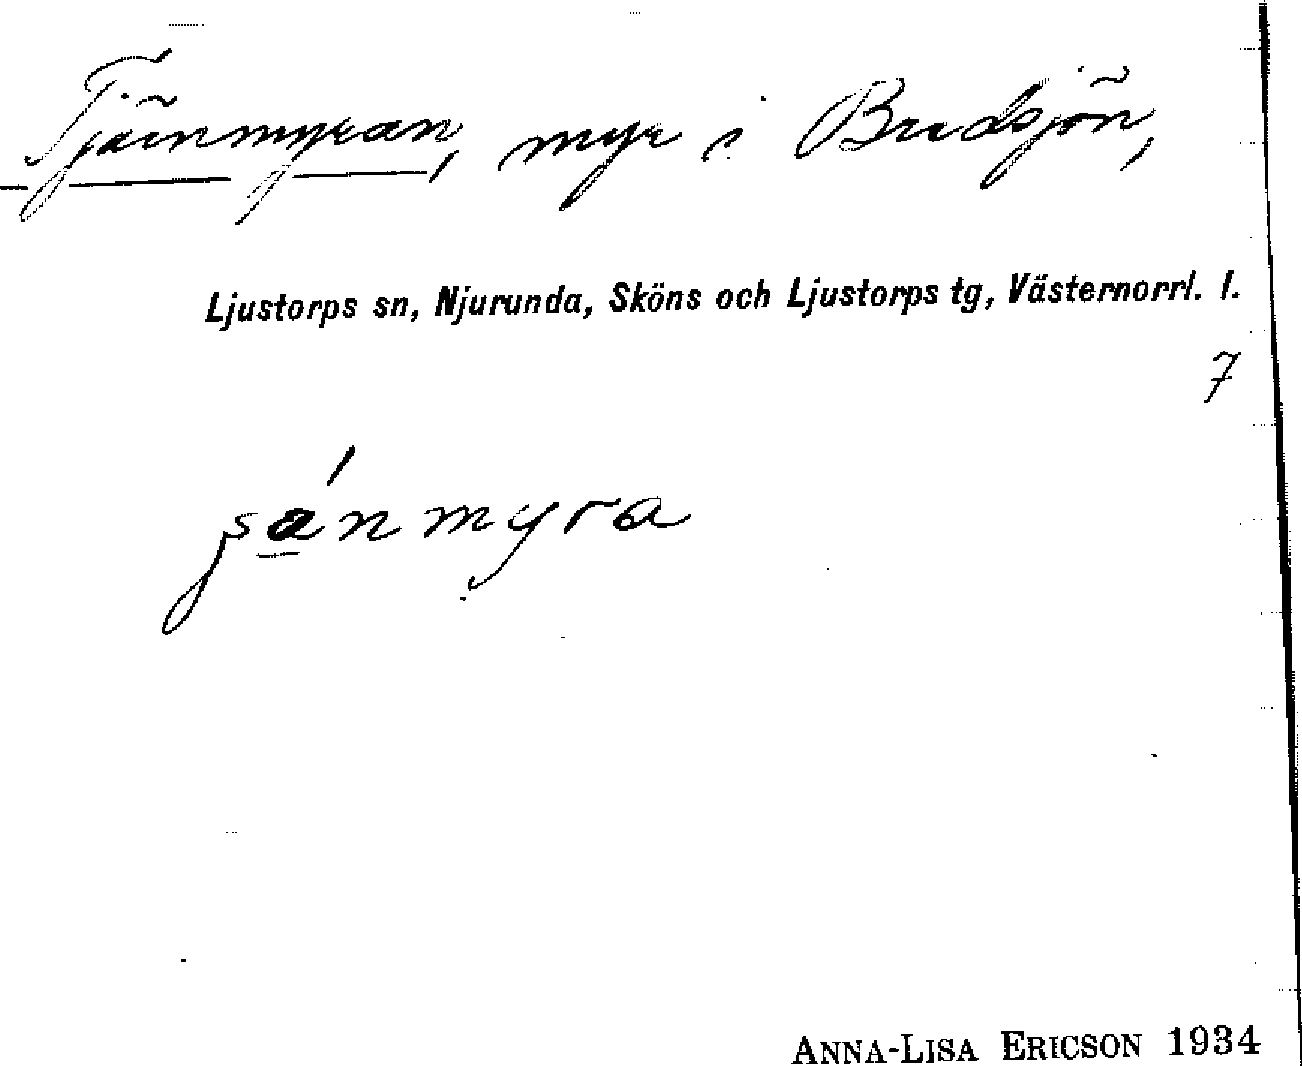 Tjärnmyran, myr i Bredsjön,
Ljustorps sn, Njurunda, Sköns och Ljustorps tg, Västernorrl. l.
7
ʂa̲´nmyra
ANNA-LISA ERICSON 1934